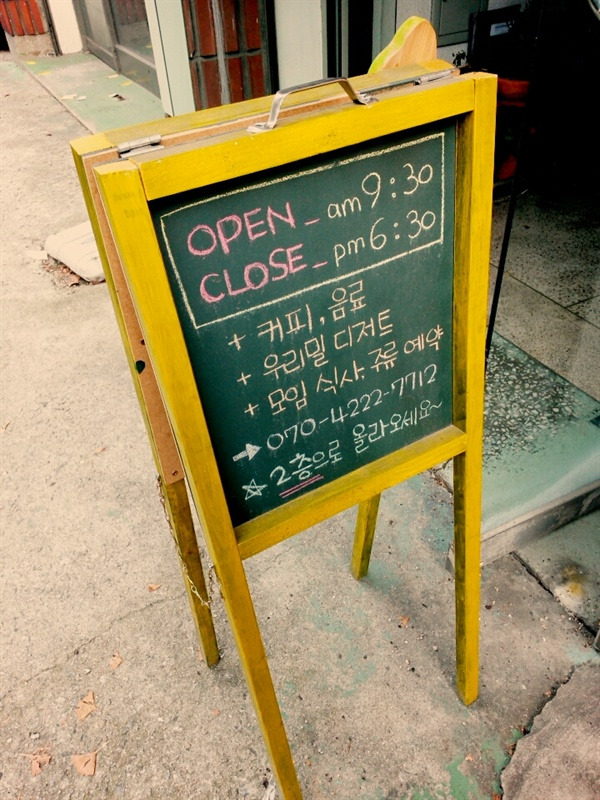 OPEN - am 9:30
CLOSE - pm 6:30
+ 커피, 음료
+ 우리밀 디저트
+ 모임 식사. 주류 예약
→ 070-4222-7712
☆ 2층으로 올라오세요~